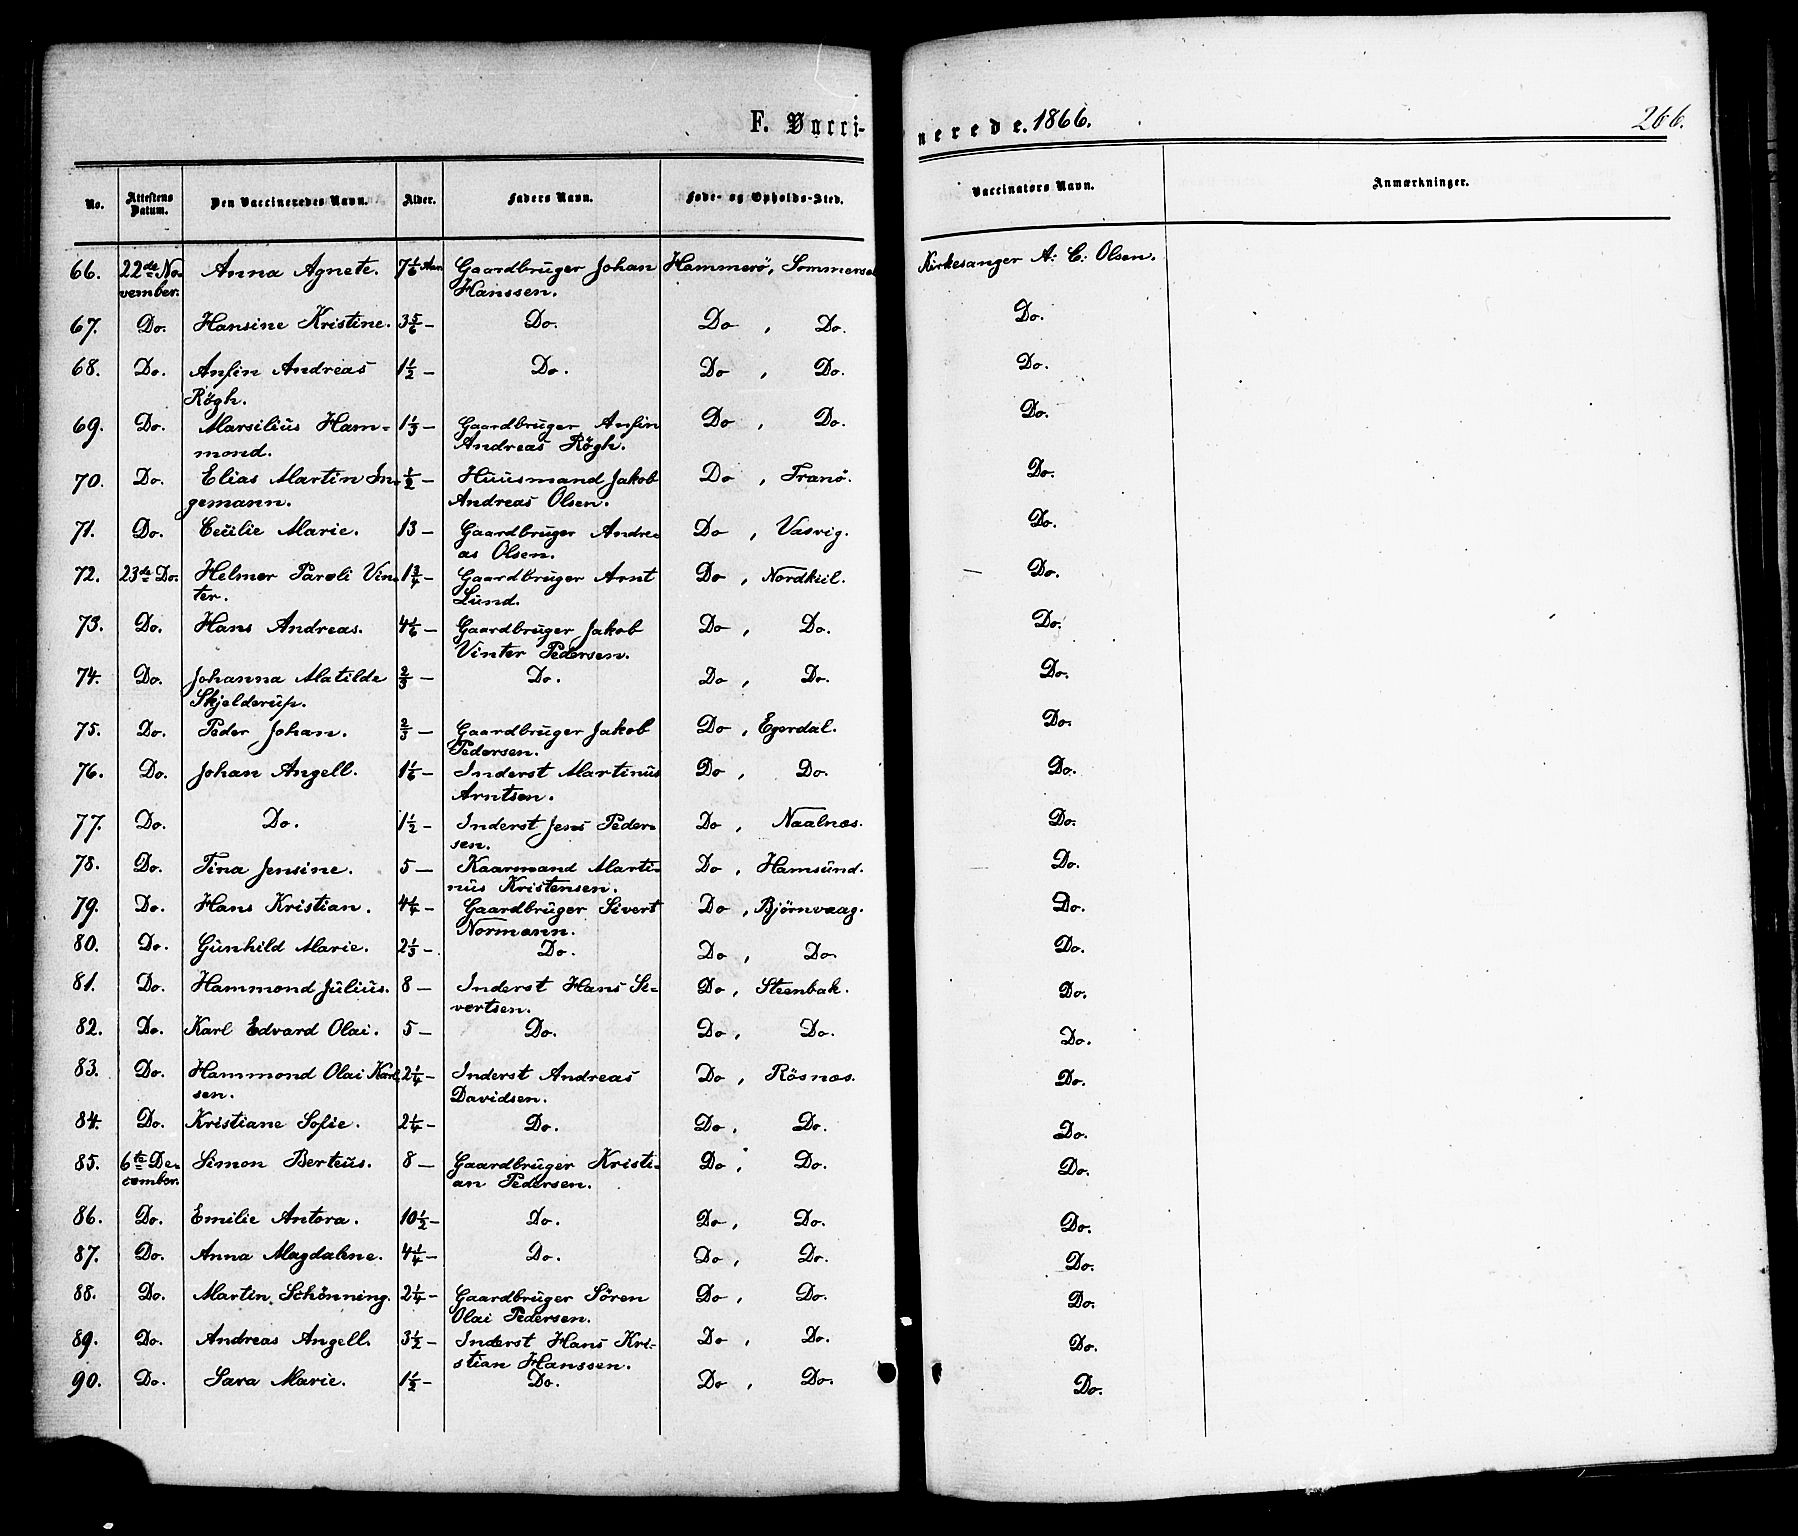 F. Vacci-
nerede. 1866.
266.
No. Attestens Datum. Den Vaccineredes Navn. Alder. Faders Navn. Føde- og Opholds-Sted. Vaccinators Navn. Anmærkninger.
66. 22de No- Anna Agnete. 7 1/6 Aar Gaardbruger Johan Hammerö, Sommerset Kirkesanger A: C: Olsen.
vember. Hanssen.
67. Do. Hansine Kristine. 3 5/6 – Do. Do , Do. Do.
68. Do. Anfin Andreas 1 1/2 – Do. Do , Do. Do.
Rögh.
69. Do. Marsilius Ham- 1 1/3 – Gaardbruger Anfin Do , Do. Do.
mond. Andreas Rögh.
70. Do. Elias Martin In- 1/2 – Huusmand Jakob Do , Tranö. Do.
gemann. Andreas Olsen.
71. Do. Cecilie Marie. 13 – Gaardbruger Andre- Do , Vasvig. Do.
as Olsen.
72. 23de Do. Helmer Pareli Vin- 1 3/4 – Gaardbruger Arnt Do , Nordkiil. Do.
ter. Lund.
73. Do. Hans Andreas. 4 1/6 – Gaardbruger Jakob Do , Do. Do.
Vinter Pedersen.
74. Do. Johanna Matilde 2/3 – Do. Do , Do. Do.
Skjelderup.
75. Do. Peder Johan. 2/3 – Gaardbruger Jakob Do , Egerdal. Do.
Pedersen.
76. Do. Johan Angell. 1 1/6 – Inderst Martinus Do , Do. Do.
Arntsen.
77. Do. Do. 1 1/2 – Inderst Jens Peder- Do , Naalnæs. Do.
sen.
78. Do. Tina Jensine. 5 – Kaarmand Marti- Do , Hamsund. Do.
nus Kristensen.
79. Do. Hans Kristian. 4 1/4 – Gaardbruger Sivert Do , Björnvaag. Do.
Normann.
80. Do. Gunhild Marie. 2 1/3 – Do. Do , Do. Do.
81. Do. Hammond Julius. 8 – Inderst Hans Si- Do , Steenbak. Do.
vertsen.
82. Do. Karl Edvard Olai. 5 – Do. Do , Do. Do.
83. Do. Hammond Olai Karl- 2 1/4 – Inderst Andreas Do , Rösnæs. Do.
sen. Davidsen.
84. Do. Kristiane Sofie. 2 1/4 – Do. Do , Do. Do.
85. 6te De- Simon Berteus. 8 – Gaardbruger Kristi- Do , Do. Do.
cember. an Pedersen.
86. Do. Emilie Antora. 10 1/2 – Do. Do , Do. Do.
87. Do. Anna Magdalene. 4 1/4 – Do. Do , Do. Do.
88. Do. Martin Schönning. 2 1/4 – Gaardbruger Sören Do , Do. Do.
Olai Pedersen.
89. Do. Andreas Angell. 3 1/2 – Inderst Hans Kri- Do , Do. Do.
stian Hanssen.
90. Do. Sara Marie. 1 1/2 – Do. Do , Do. Do.